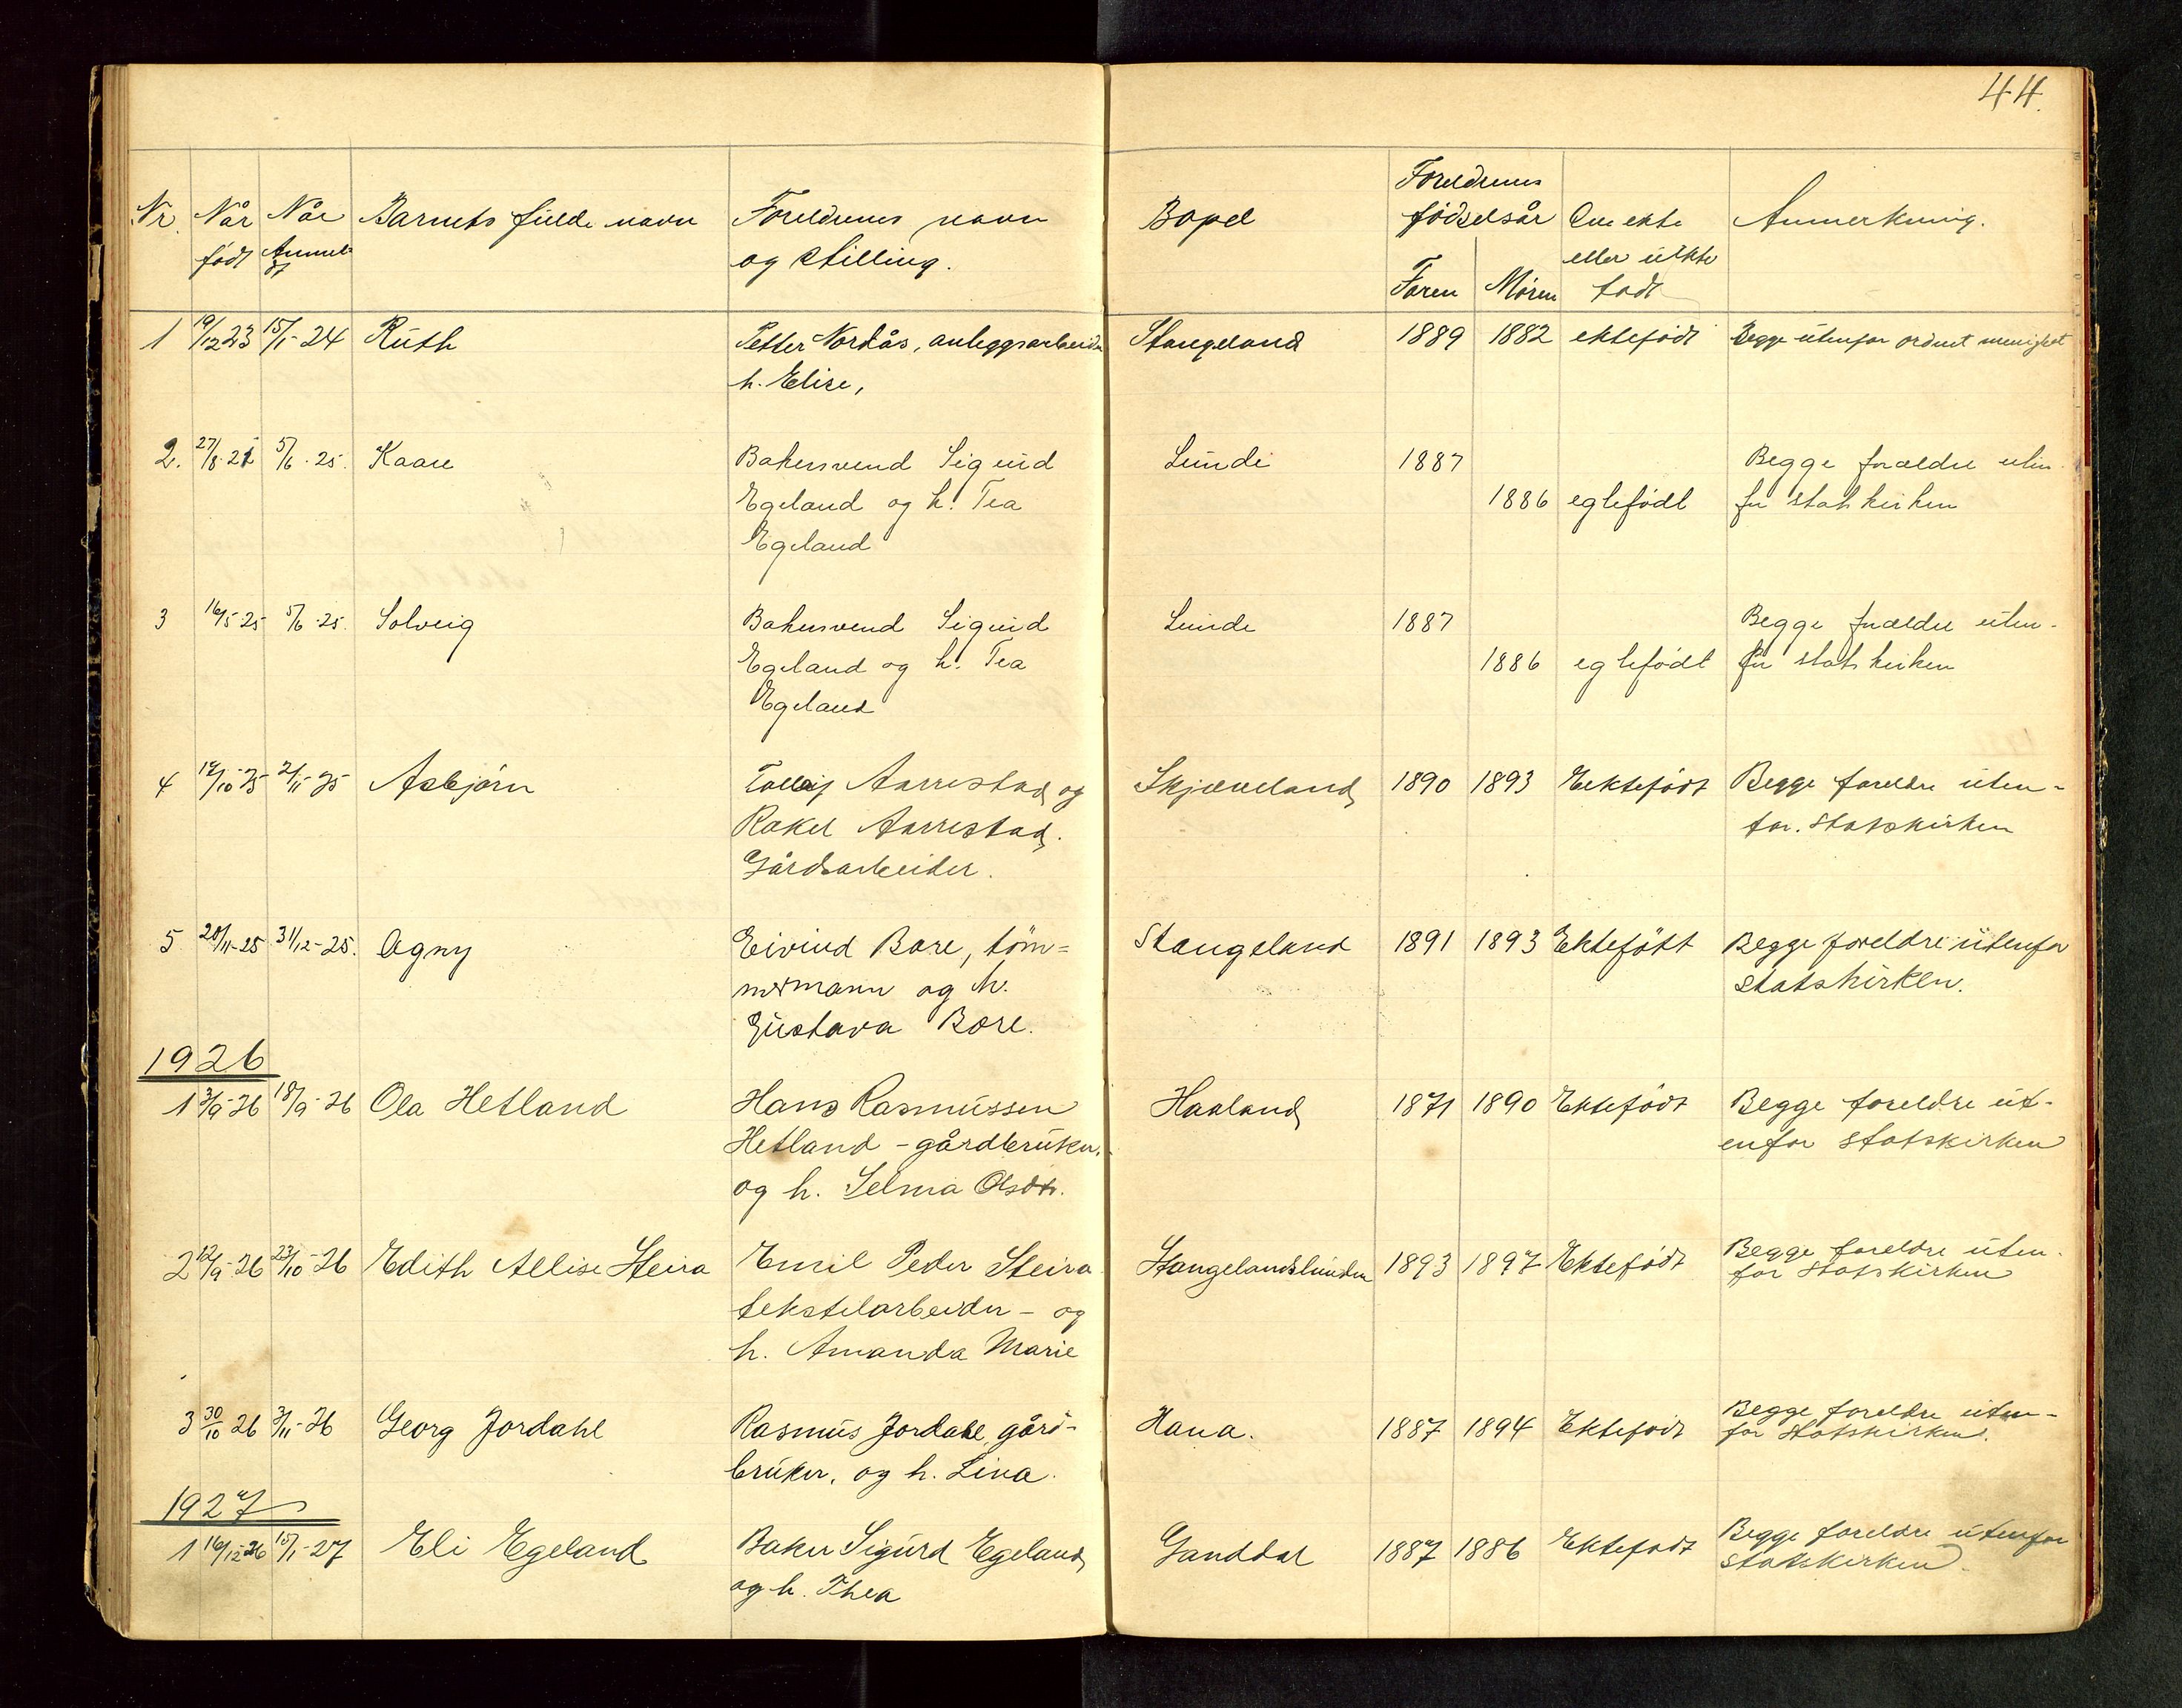 44.
Nr. Når født Når Anmeldt Barnets fulde navn Foreldrenes navn og stilling. Bopel Foreldrenes fødselsår Faren Moren Om ekte eller uekte født Anmerkning.
1 19/12 23 15/1-24 Ruth Petter Nordås, anleggsarbeider Stangeland 1889 1882 ektefødt Begge utenfor ordnet menighet
h. Elise,
2. 27/8-21 5/6-25. Kaare Bakersvend Sigurd Lunde 1887 Begge forældre uten-
Egeland og h. Tea 1886 egtefødt for statskirken
Egeland
3 16/5-25 5/6-25. Solveig Bakersvend Sigurd Lunde 1887 Begge forældre uten-
Egeland og h. Tea 1886 egtefødt for statskirken
Egeland
4 14/10-25 2/11-25 Asbjørn Tolleif Aarrestad og Skjæveland 1890 1893 Eektefødt Begge foreldre uten-
Rakel Aarrestad. for. statskirken
Gårdsarbeider.
5 28/11-25 31/12-25. Agny Eivind Bore, töm- Stangeland 1891 1893 Ektefött Begge foreldre utenfor
mermann og h. statskirken.
Gustava Bore.
1926
1 3/9-26 18/9-26 Ola Hetland Hans Rasmussen Haaland 1871 1890 Ektefødt Begge foreldre ut-
Hetland - gårdbruker. enfor statskirken
og h. Selma Olsdtr.
2 12/9-26 23/10-26 Edith Allise Steira Emil Peder Steira Stangelandslunden 1893 1897 Ektefødt Begge foreldre uten-
tekstilarbeider - og for statskirken
h. Amanda Marie
3 30/10 26 3/11-26 Georg Jordahl Rasmus Jordahl gård- Hana. 1887 1894 Ektefødt Begge foreldre uten-
bruker, og h. Lina. for statskirken.
1927
1 16/12-26 15/1-27 Eli Egeland Baker Sigurd Egeland Ganddal 1887 1886 Ektefødt Begge foreldre utenfor
og h. Thea statskirken.